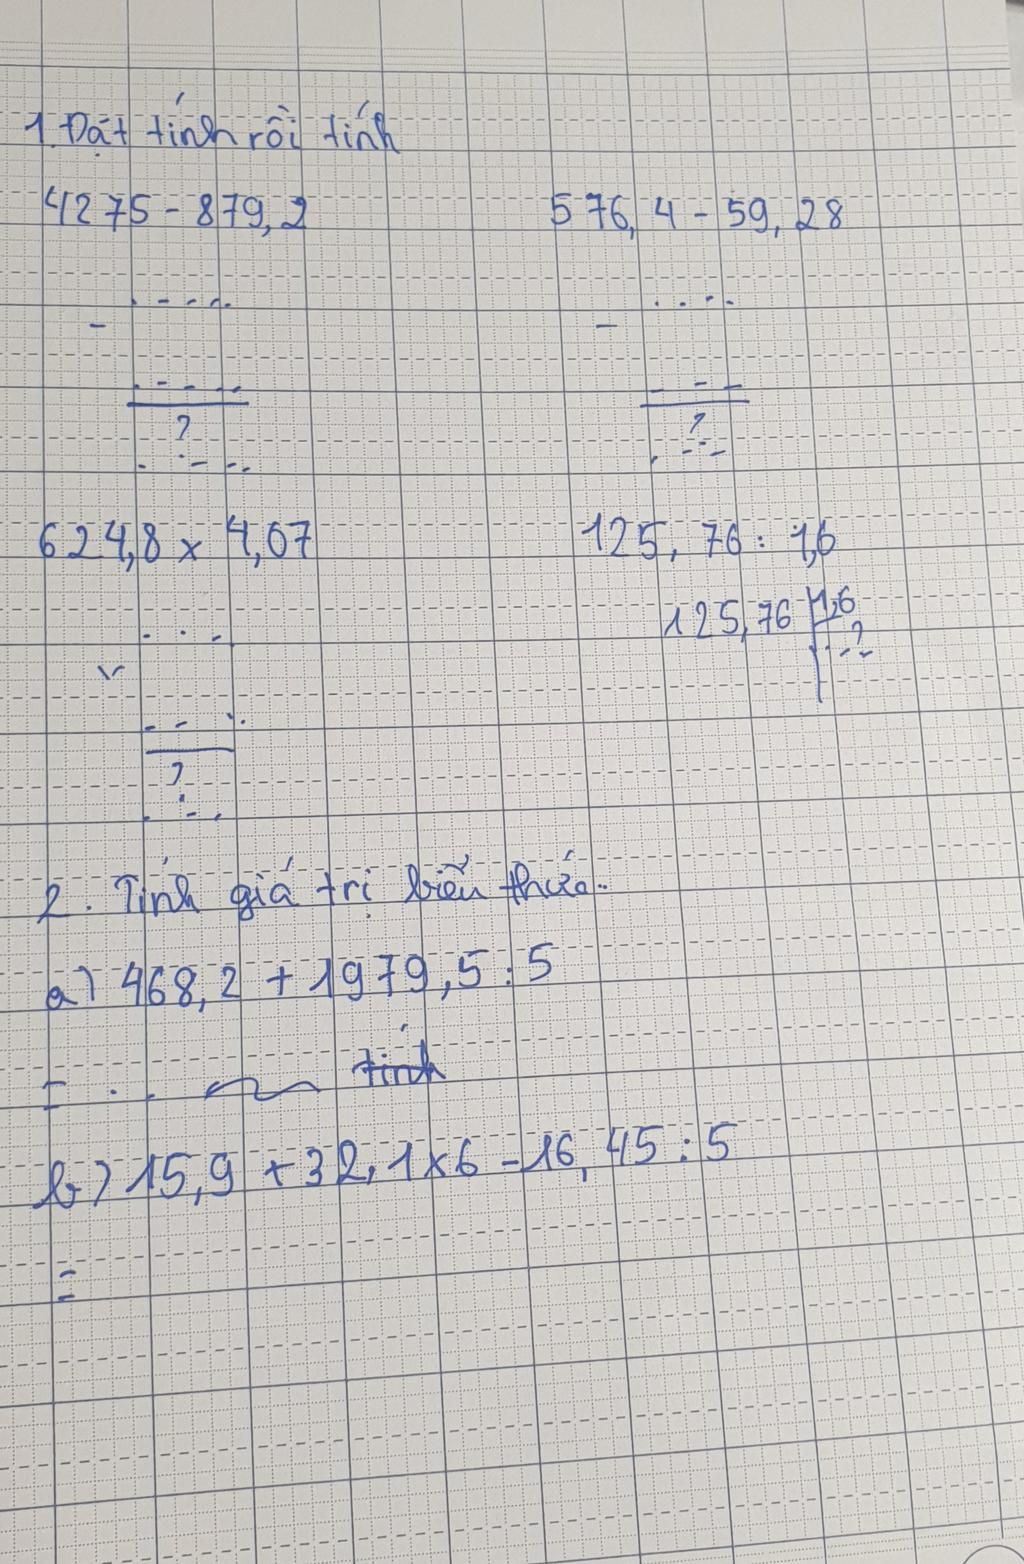 1. Đặt tính rồi tính
4275 - 879,2 576,4 - 59,28
- .... - ....
....
?
....
....
?
....
624,8 x 4,07 125,76 : 1,6
... 125,76 1,6
x ..?
...
?
...
2. Tính giá trị biểu thức.
a) 468,2 + 1979,5 : 5
= .. tính
b) 15,9 + 32,1 x 6 - 16,45 : 5
=